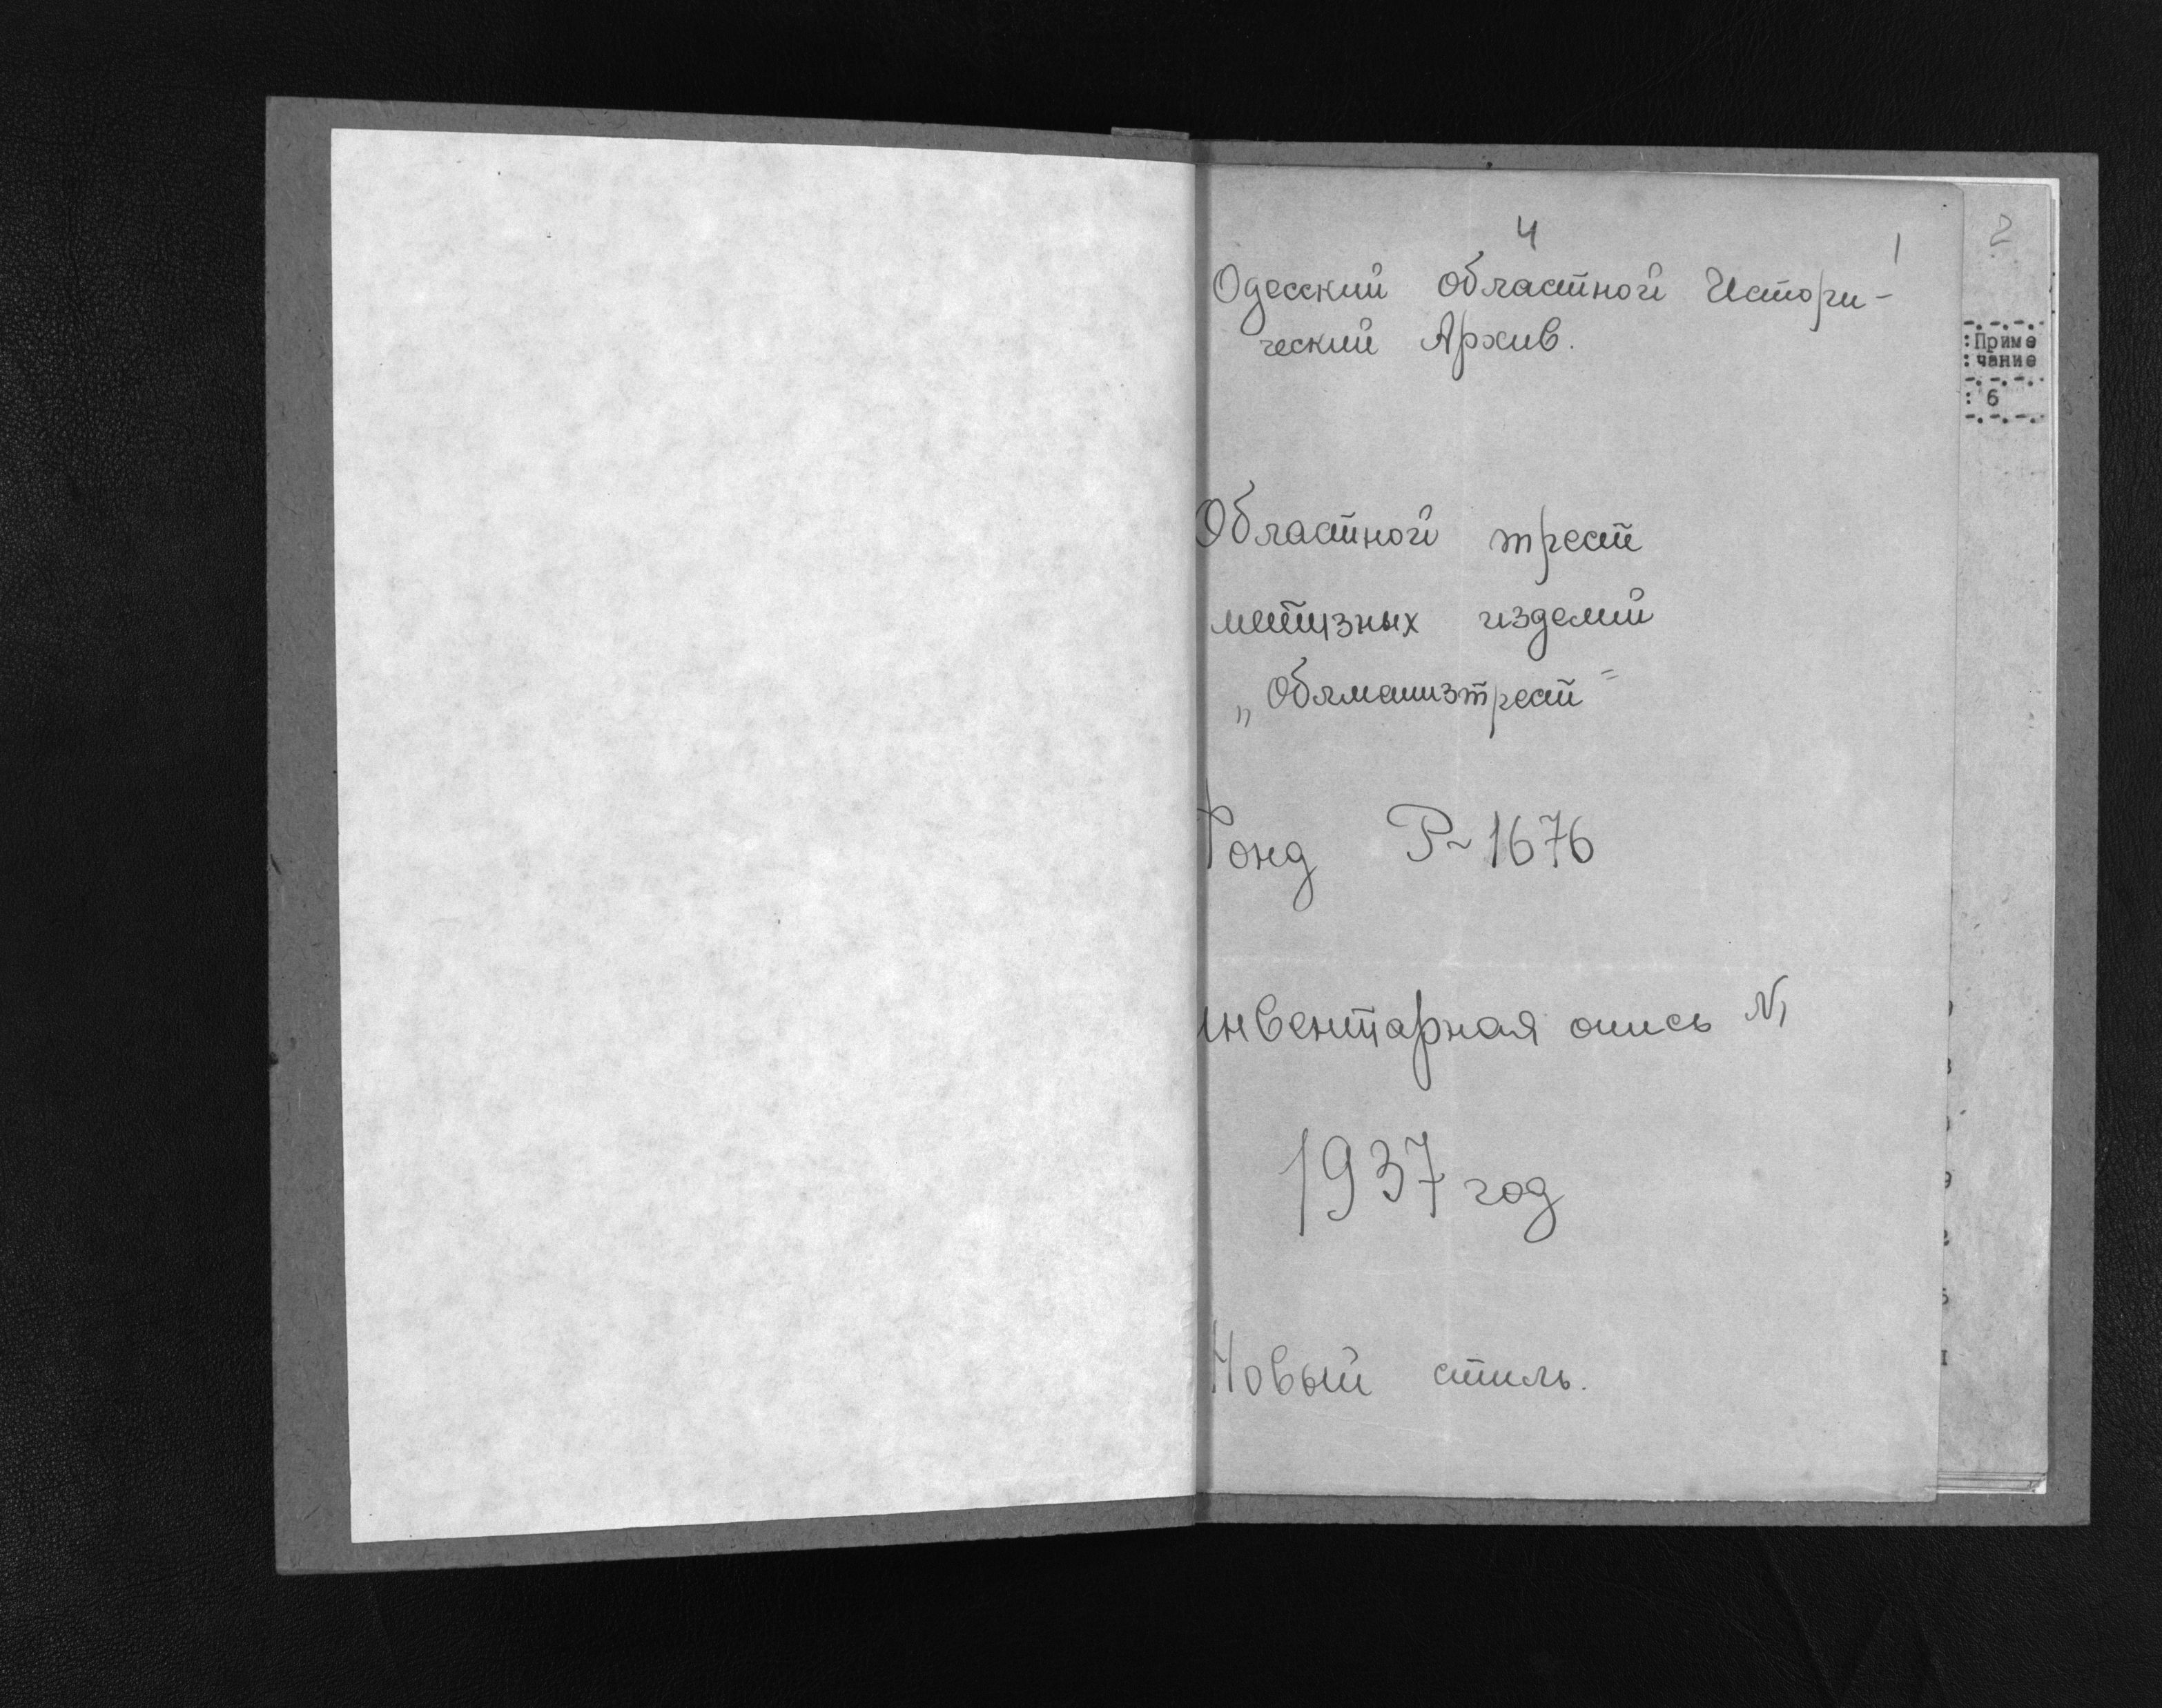 4
1
Одесский областной Истори-
ческий Архив.
Областной трест
метизных изделий
„Облметизтрест"
Фонд Р-1676
Инвентарная опись №1
1937 год
Новый стиль.
2
Приме
чание
6